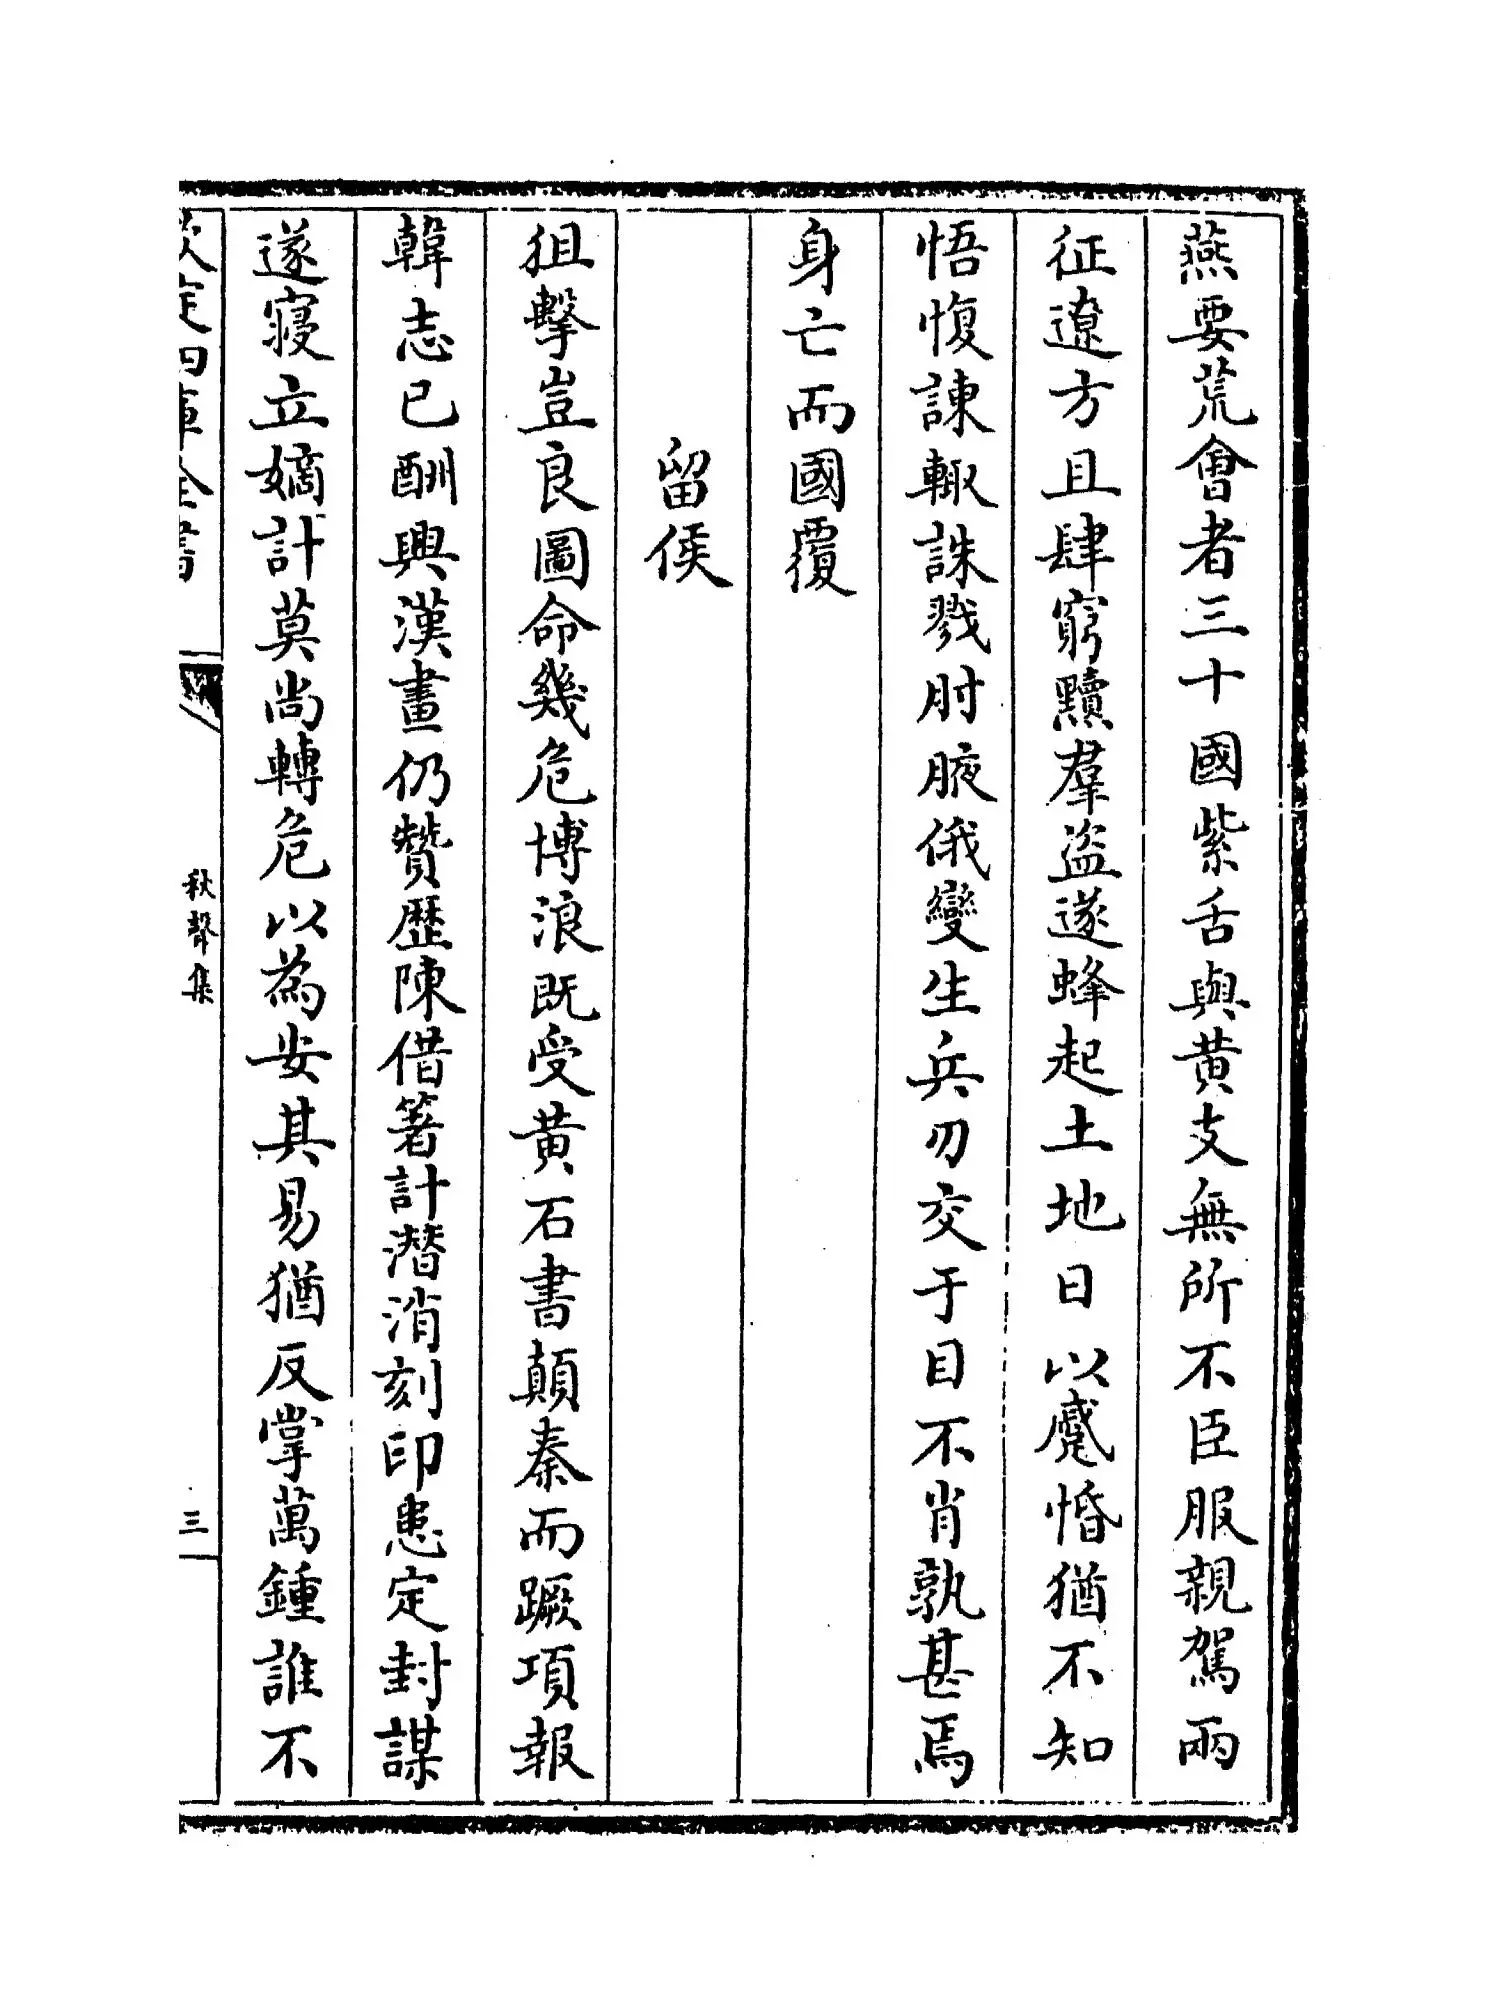 燕要荒會者三十國紫舌與黄支無所不臣服親駕兩
征遼方且肆窮黷羣盗遂蜂起土地日以蹙惛猶不知
悟愎諌輙誅戮肘腋俄變生兵刃交于目不肖孰甚焉
身亡而國覆
留侯
狙擊豈良圖命幾危博浪既受黄石書顛秦而蹶項報
韓志已酬興漢畫仍贊歴陳借箸計潜消刻印患定封謀
遂寢立嫡計莫尚轉危以為安其易猶反掌萬鍾誰不
欽定四庫全書
秋聲集
三